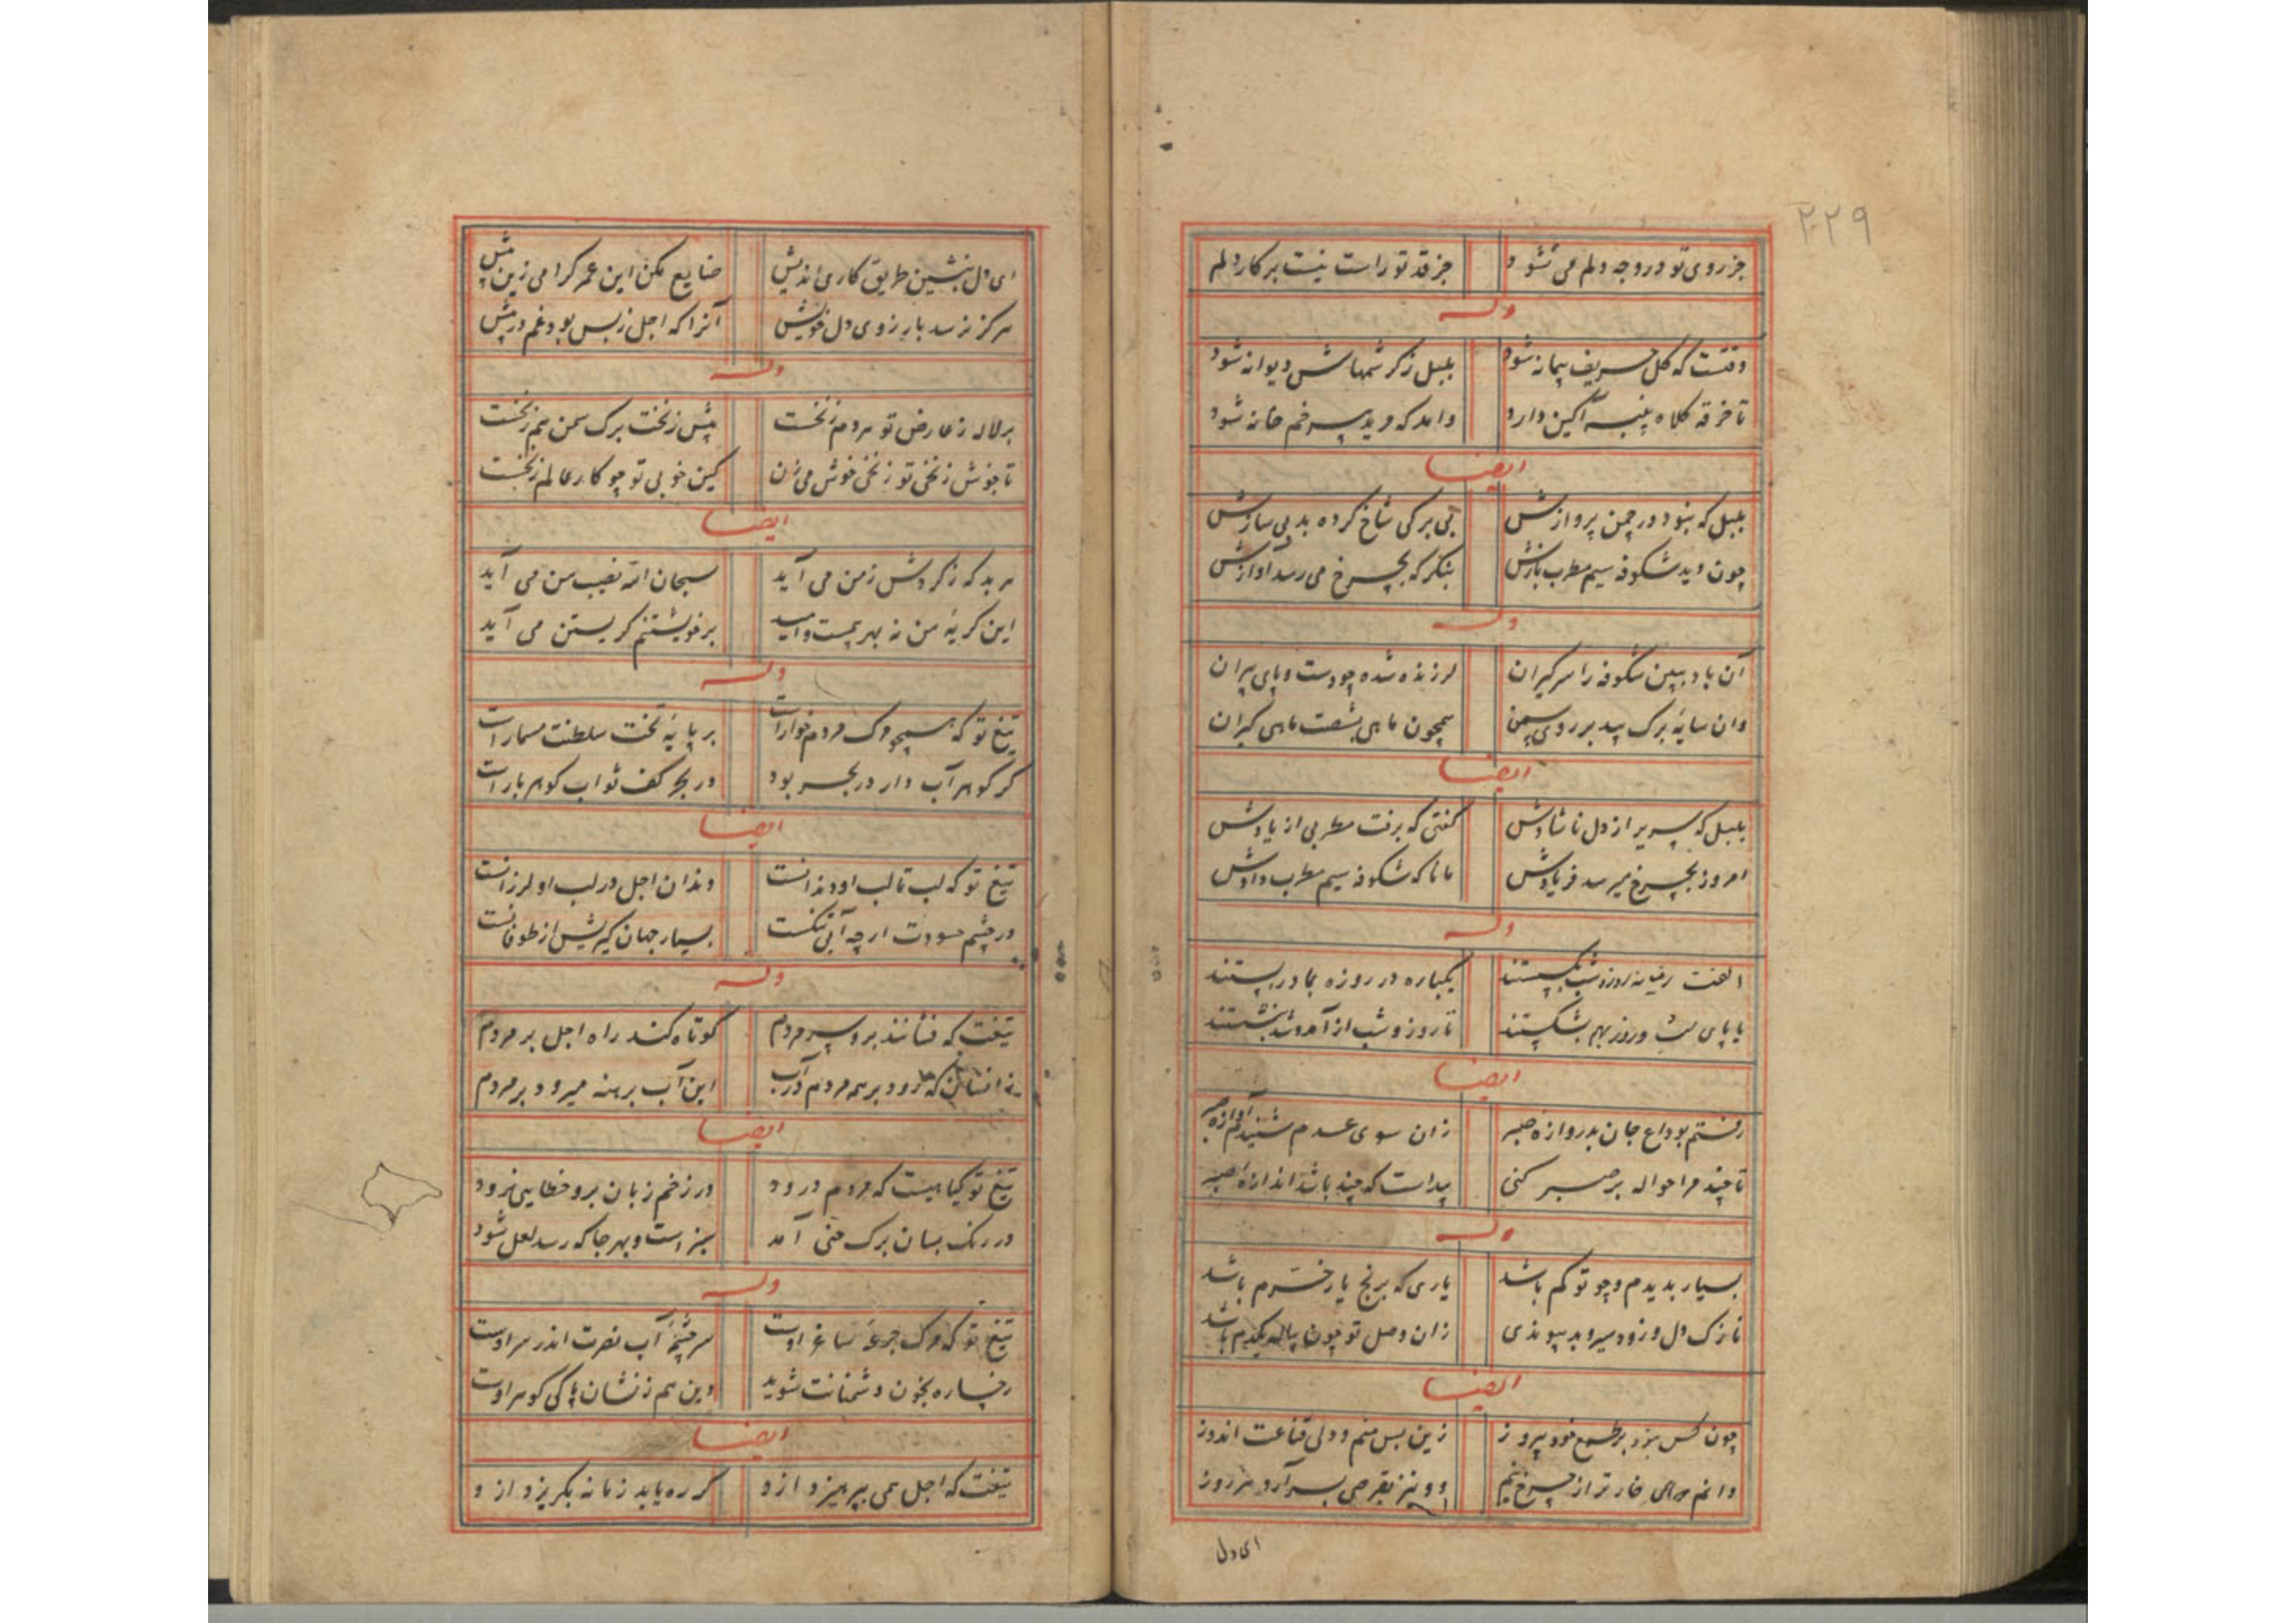 ۲۲۹
جز روی تو در وجه دلم می نشود جز قد تو راست نیست بر کار دلم
وله
وقتست که گل حریف پیمانه شود بلبل ز کرشمهاش دیوانه شود
تا خرقه کلاه پنبه آکین دارد وامد که مرید پیر خمخانه شود
ایضا
بلبل که نبود در چمن پروازش بی برگی شاخ کرده بد بی سازش
چون دید شکوفه سیم مطرب بازش بنکر که بچرخ می رسد آوازش
وله
آن باد ببین شکوفه را سر گیران لرزنده شده چو دست و پای پیران
وان سایهٔ برک بید بر روی سمن همچون ماهی بشصت ماهی گیران
ایضا
بلبل که سریر از دل ناشادش گفتی که برفت مطربی از یادش
امروز بچرخ میرسد فریادش مانا که شکوفه سیم مطرب دادش
وله
الفت ز میانه روز و شب بکسستند یکباره در روزه بما در بستند
یا پای شب و روز بهم بشکستند تا روز و شب از آمد و شد بنشستند
ایضا
رفتم بوداع جان بدروازه صبر زان سوی عدم شنیدم آوازه صبر
تا چند مرا حواله بر صبر کنی پیداست که چند باشد اندازه صبر
وله
بسیار بدیدم و چو تو کم باشد یاری که برنج یار خرم باشد
نازک دل و زود سیر و بد پیوندی زان وصل تو چون پیاله یکدم باشد
ایضا
چون کس نبود بر طمع خود پیروز زین بس منم و دلی قناعت اندوز
دانم خار تر از چرخ نیم و و نیز بقرصی بسر آرد هر روز
ای دل
ای دل بنشین طریق کاری اندیش ضایع مکن این عمر گرامی زین پیش
هرکز نرسد بارزوی دل خویش آنرا که اجل ز پس بود غم در پیش
وله
بر لاله ز عارض تو هر دم ز نخست پیش زنخت برک سمن هم زنخست
تا جوش زنخی تو زنخی خوش می زن کین خوبی تو چو کار عالم زنخست
ایضا
هر بد که ز کردش زمن می آید سبحان الله نصیب من می آید
این کریهٔ من نه بهر بیمست و امید بر خویشتنم کریستن می آید
وله
تیغ تو که همچو مرک مردم خوارست بر پایهٔ تخت سلطنت مسمارست
کر کوهر آب دار در بحر بود در بحر کف تو آب کوهر بارست
ایضا
تیغ تو که لب تا لب او دندانست دندان اجل در لب او لرزانست
در چشم حسودت ار چه آبی تنکست بسیار جهان کیریش از طوفانست
وله
تیغت که فشانند برو سر مردم کوتاه کند راه اجل بر مردم
نه انسان که رود بر همه مردم در آب این آب برهنه میرود بر مردم
ایضا
تیغ تو کیاهیست که مردم درود در زخم زبان برو خطایی نرود
در رنک بسان برک حنی آمد سبز است و بهر جا که رسد لعل شود
وله
تیغ تو که مرک جرعهٔ ساغر اوست سر چشمهٔ آب نصرت اندر سر اوست
رخساره بخون دشمنانت شوید وین هم ز نشان پاکی کوهر اوست
ایضا
تیغت که اجل همی بپرهیزد ازو کر ره یابد زمانه بکریزد ازو